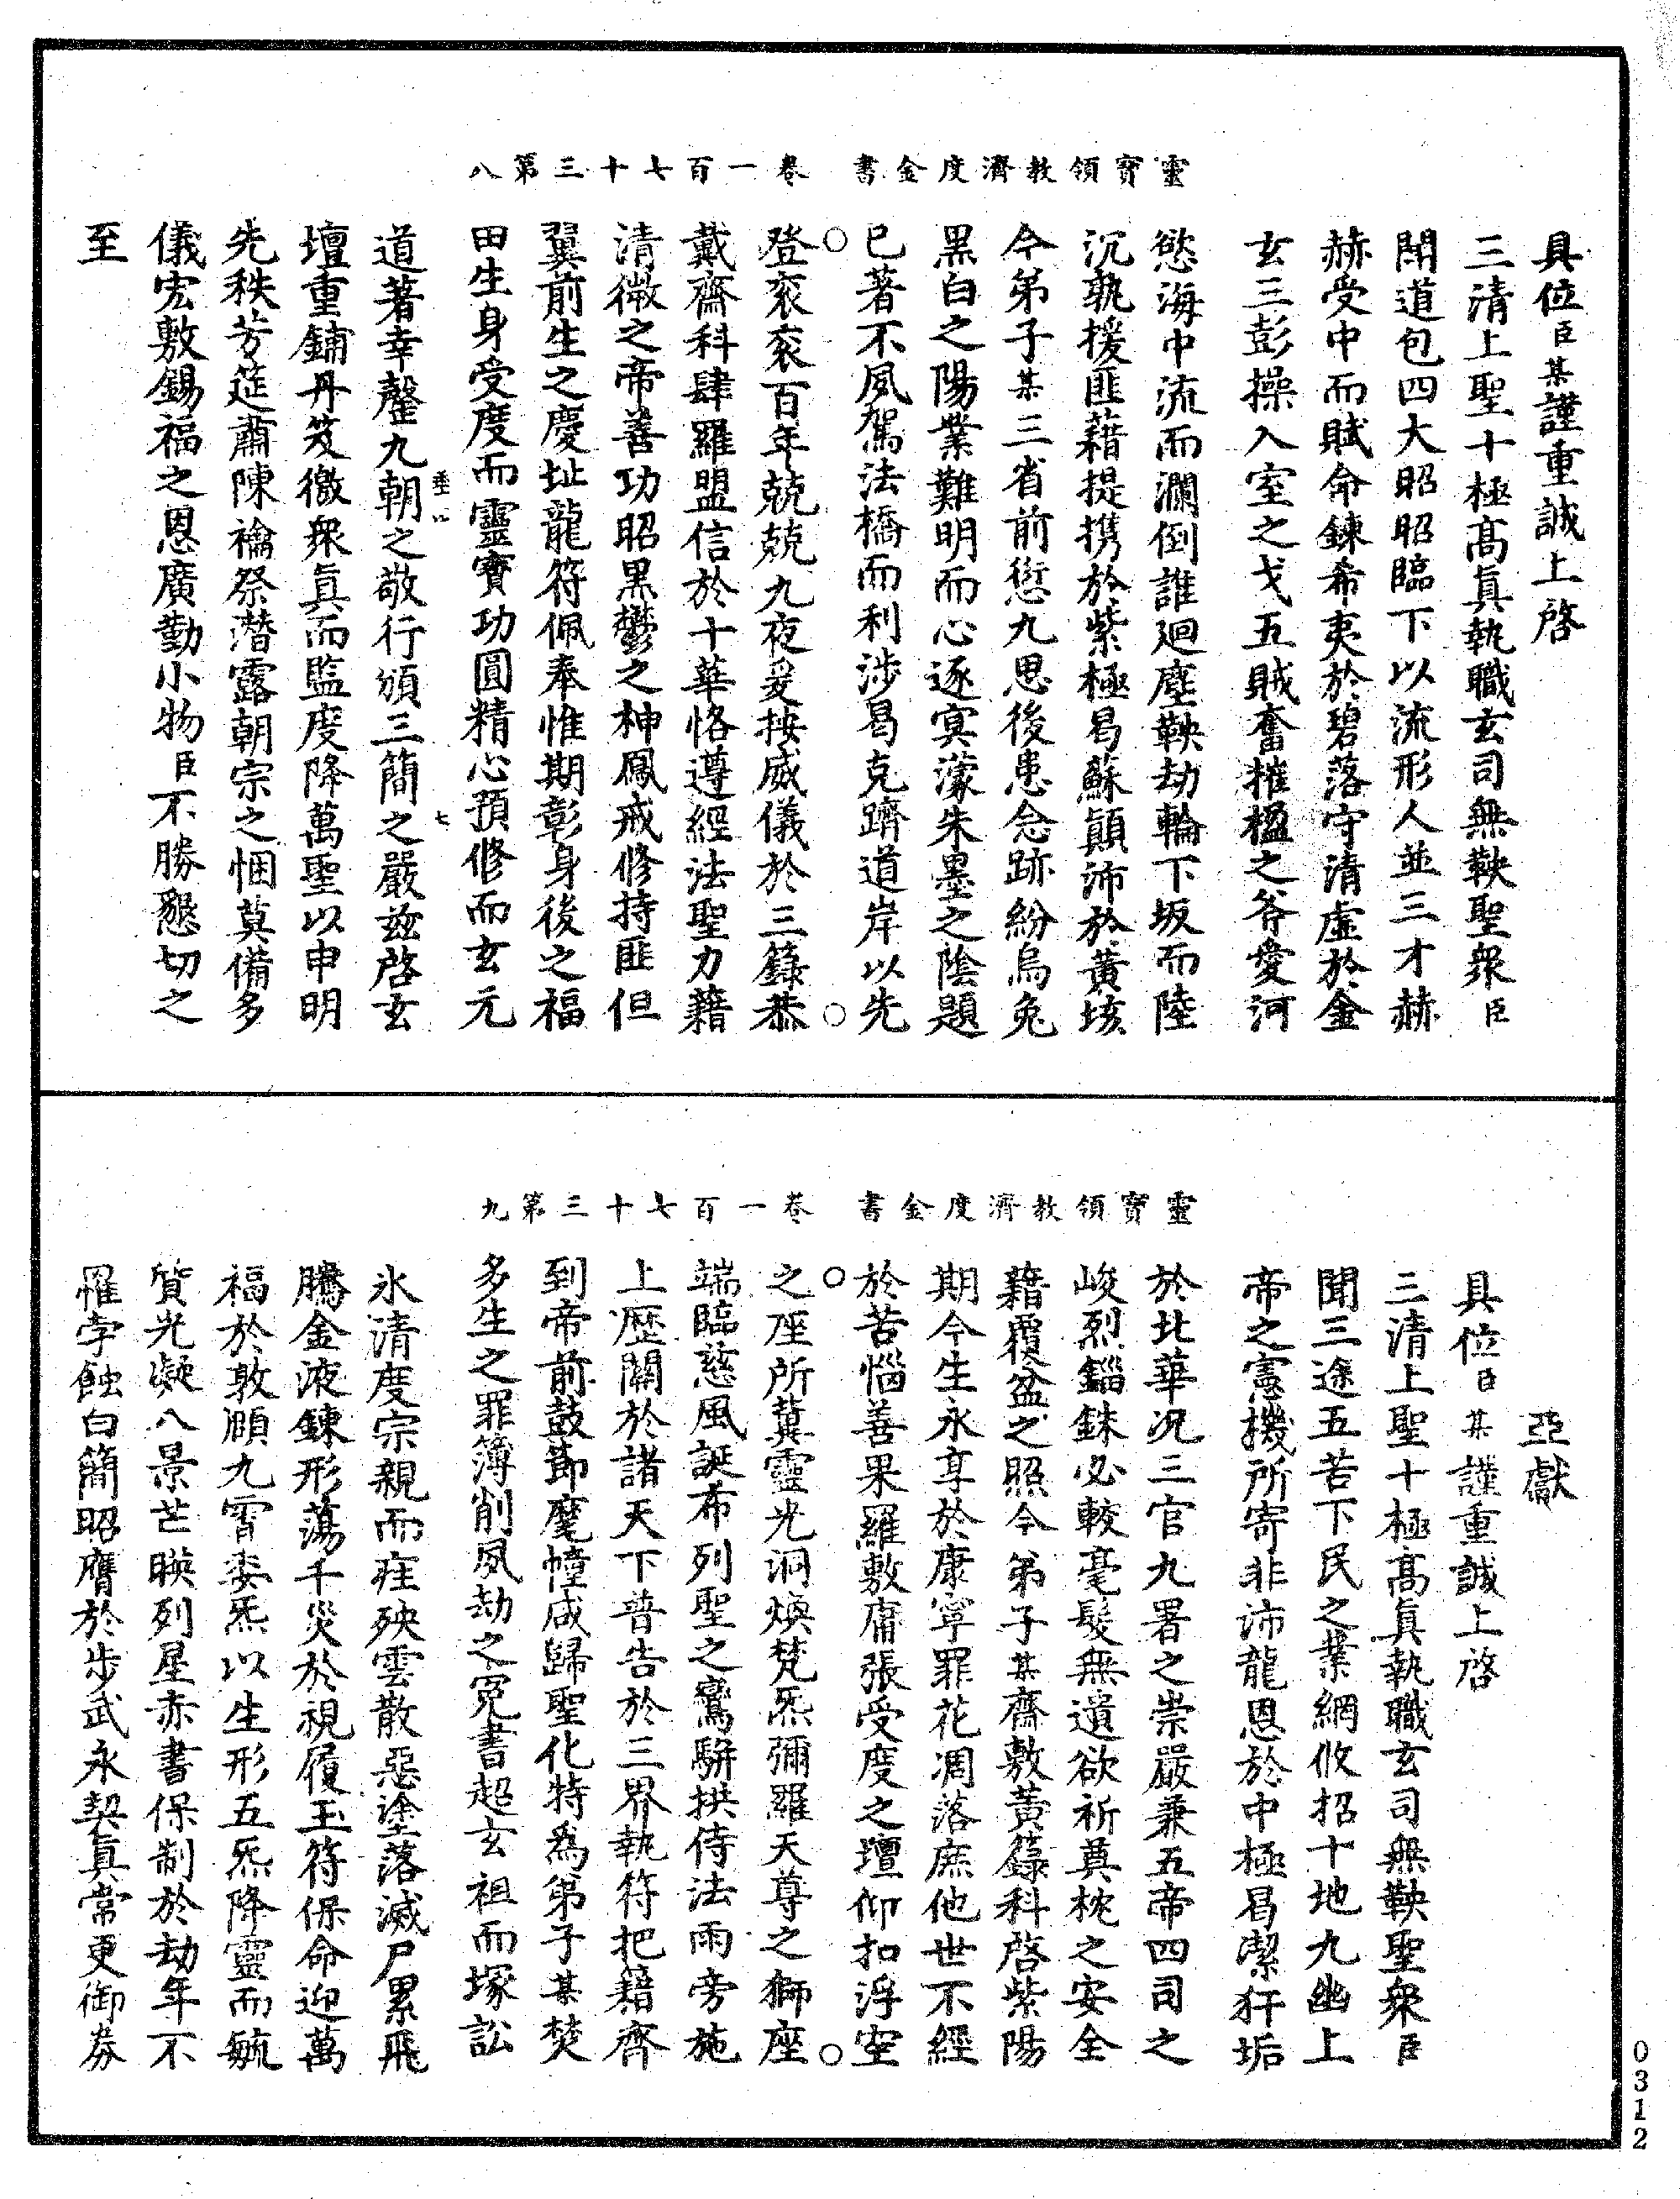 靈寶領教濟度金書 卷一百七十三第八
具位臣某謹重誠上啓
三清上聖十極高真執職玄司無鞅聖衆臣
聞道包四大昭昭臨下以流形人並三才赫
赫受中而賦命鍊希夷於碧落守清虛於金
玄三彭操入室之戈五賊奮摧楹之斧愛河
慾海中流而瀾倒誰迴塵鞅劫輪下坂而陸
沉孰援匪藉提携於紫極曷蘇顛沛於黃垓
今弟子某三省前愆九思後患念跡紛烏兔
黑白之陽業難明而心逐冥濛朱墨之陰題
已著不夙駕法橋而利涉曷克躋道岸以先
登衮衮百年兢兢九夜爰按威儀於三籙恭
戴齋科肆羅盟信於十華恪遵經法聖力藉
清微之帝善功昭黑鬱之神鳳戒修持匪但
翼前生之慶址龍符佩奉惟期彰身後之福
田生身受度而靈寶功圓精心預修而玄元
道著幸罄九朝之敬行頒三簡之嚴兹啓玄
壇重鋪丹笈徼衆真而監度降萬聖以申明
先秩芳筵肅陳禴祭潛露朝宗之悃莫備多
儀宏敷錫福之恩廣勤小物臣不勝懇切之
至
靈寶領教濟度金書 卷一百七十三第九
亞獻
具位臣某謹重誠上啓
三清上聖十極高真執職玄司無鞅聖衆臣
聞三途五苦下民之業網攸招十地九幽上
帝之憲機所寄非沛龍恩於中極曷潔犴垢
於北華况三官九署之崇嚴兼五帝四司之
峻烈錙銖必較毫髮無遺欲祈奠枕之安全
藉覆盆之照今弟子某齋敷黃籙科啓紫陽
期今生永享於康寧罪花凋落庶他世不經
於苦惱善果羅敷庸張受度之壇仰扣浮空
之座所冀靈光洞煥梵炁彌羅天尊之獅座
端臨慈風誕布列聖之鸞駢拱侍法雨旁施
上歷關於諸天下普告於三界執符把籍齊
到帝前鼓節麾幢咸歸聖化特爲弟子某焚
多生之罪簿削夙劫之冤書超玄祖而塚訟
氷清度宗親而疰殃雲散惡塗落滅尸累飛
騰金液鍊形蕩千災於視履玉符保命迎萬
福於敦頤九霄委炁以生形五炁降靈而毓
質光凝八景芒暎列星赤書保制於劫年不
罹孛蝕白簡昭膺於步武永契真常更御券
0312